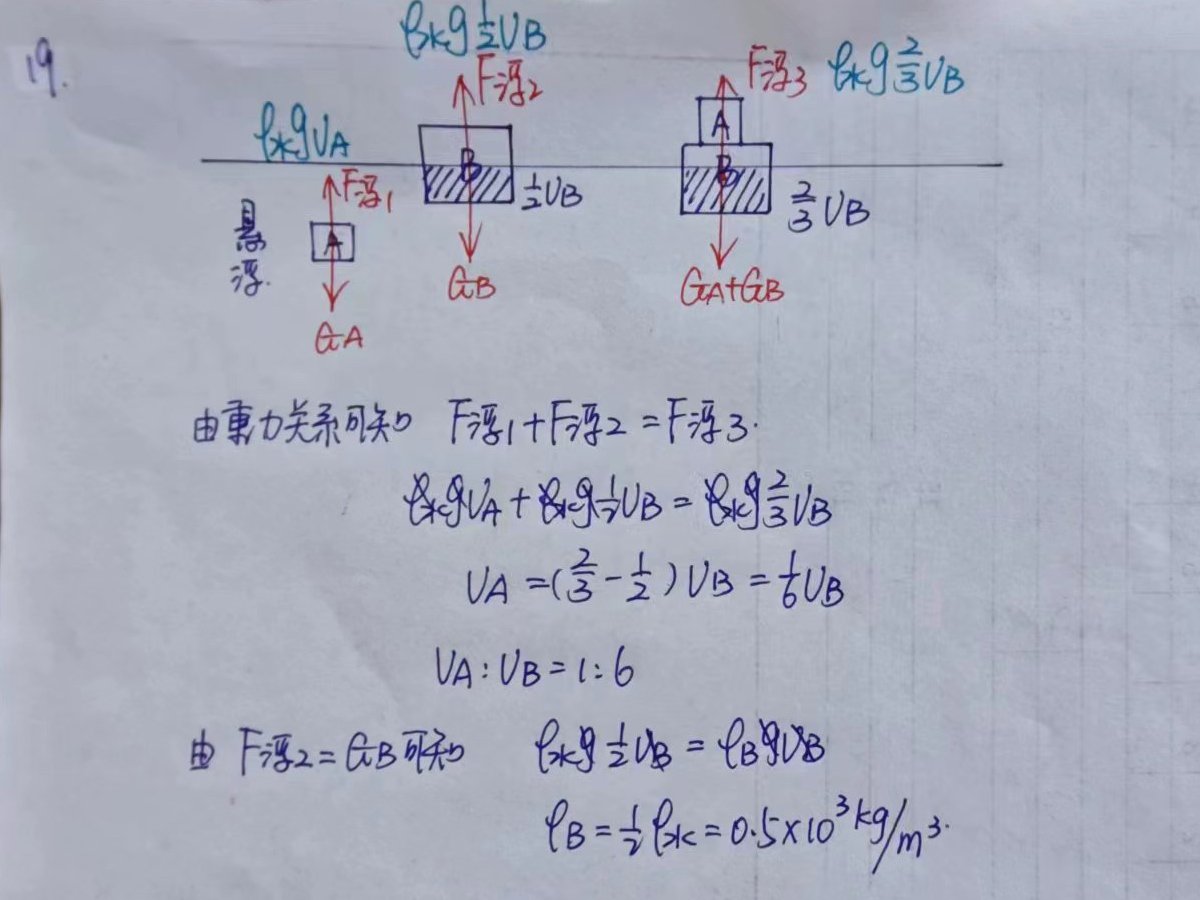 19.
ρ水g½VB
F浮2
F浮3 ρ水g⅔VB
ρ水gVA
A
F浮1
B
½VB
B
⅔VB
悬浮.
A
GB
GA+GB
GA
由重力关系可知 F浮1+F浮2=F浮3.
ρ水gVA+ρ水g½VB=ρ水g⅔VB
VA=(⅔-½)VB=⅙VB
VA:VB=1:6
由 F浮2=GB可知 ρ水g½VB=ρBgVB
ρB=½ρ水=0.5×10³kg/m³.